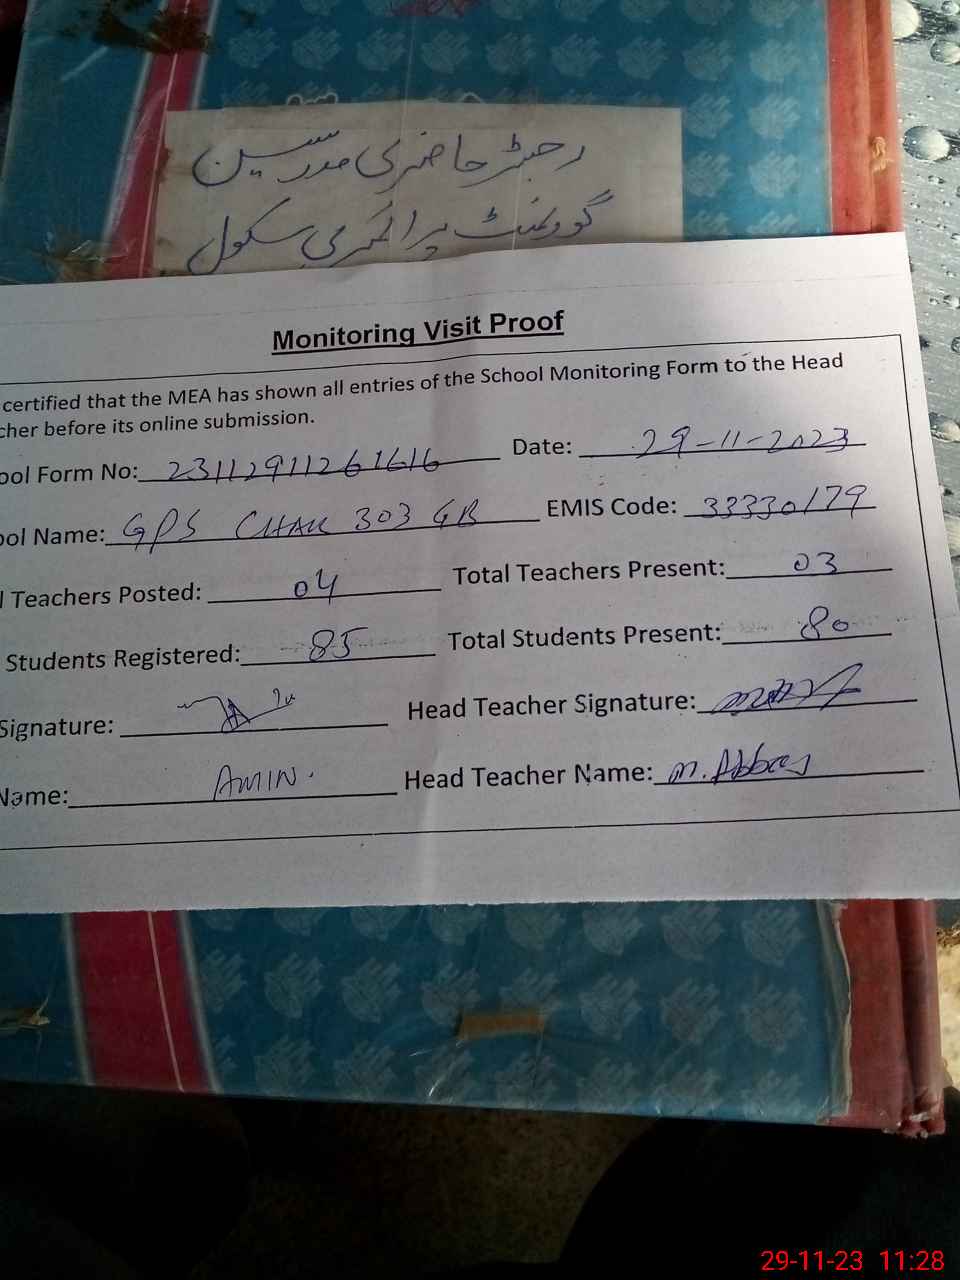 رجسٹر حاضری مدرسین
گورنمنٹ پرائمری سکول
Monitoring Visit Proof
certified that the MEA has shown all entries of the School Monitoring Form to the Head
cher before its online submission.
ool Form No: 23112911261616 Date: 29-11-2023
ool Name: GPS CHAK 303 GB EMIS Code: 33330179
l Teachers Posted: 04 Total Teachers Present: 03
Students Registered: 85 Total Students Present: 80
Signature: Head Teacher Signature:
Name: AMIN. Head Teacher Name: M. Abbas
29-11-23 11:28